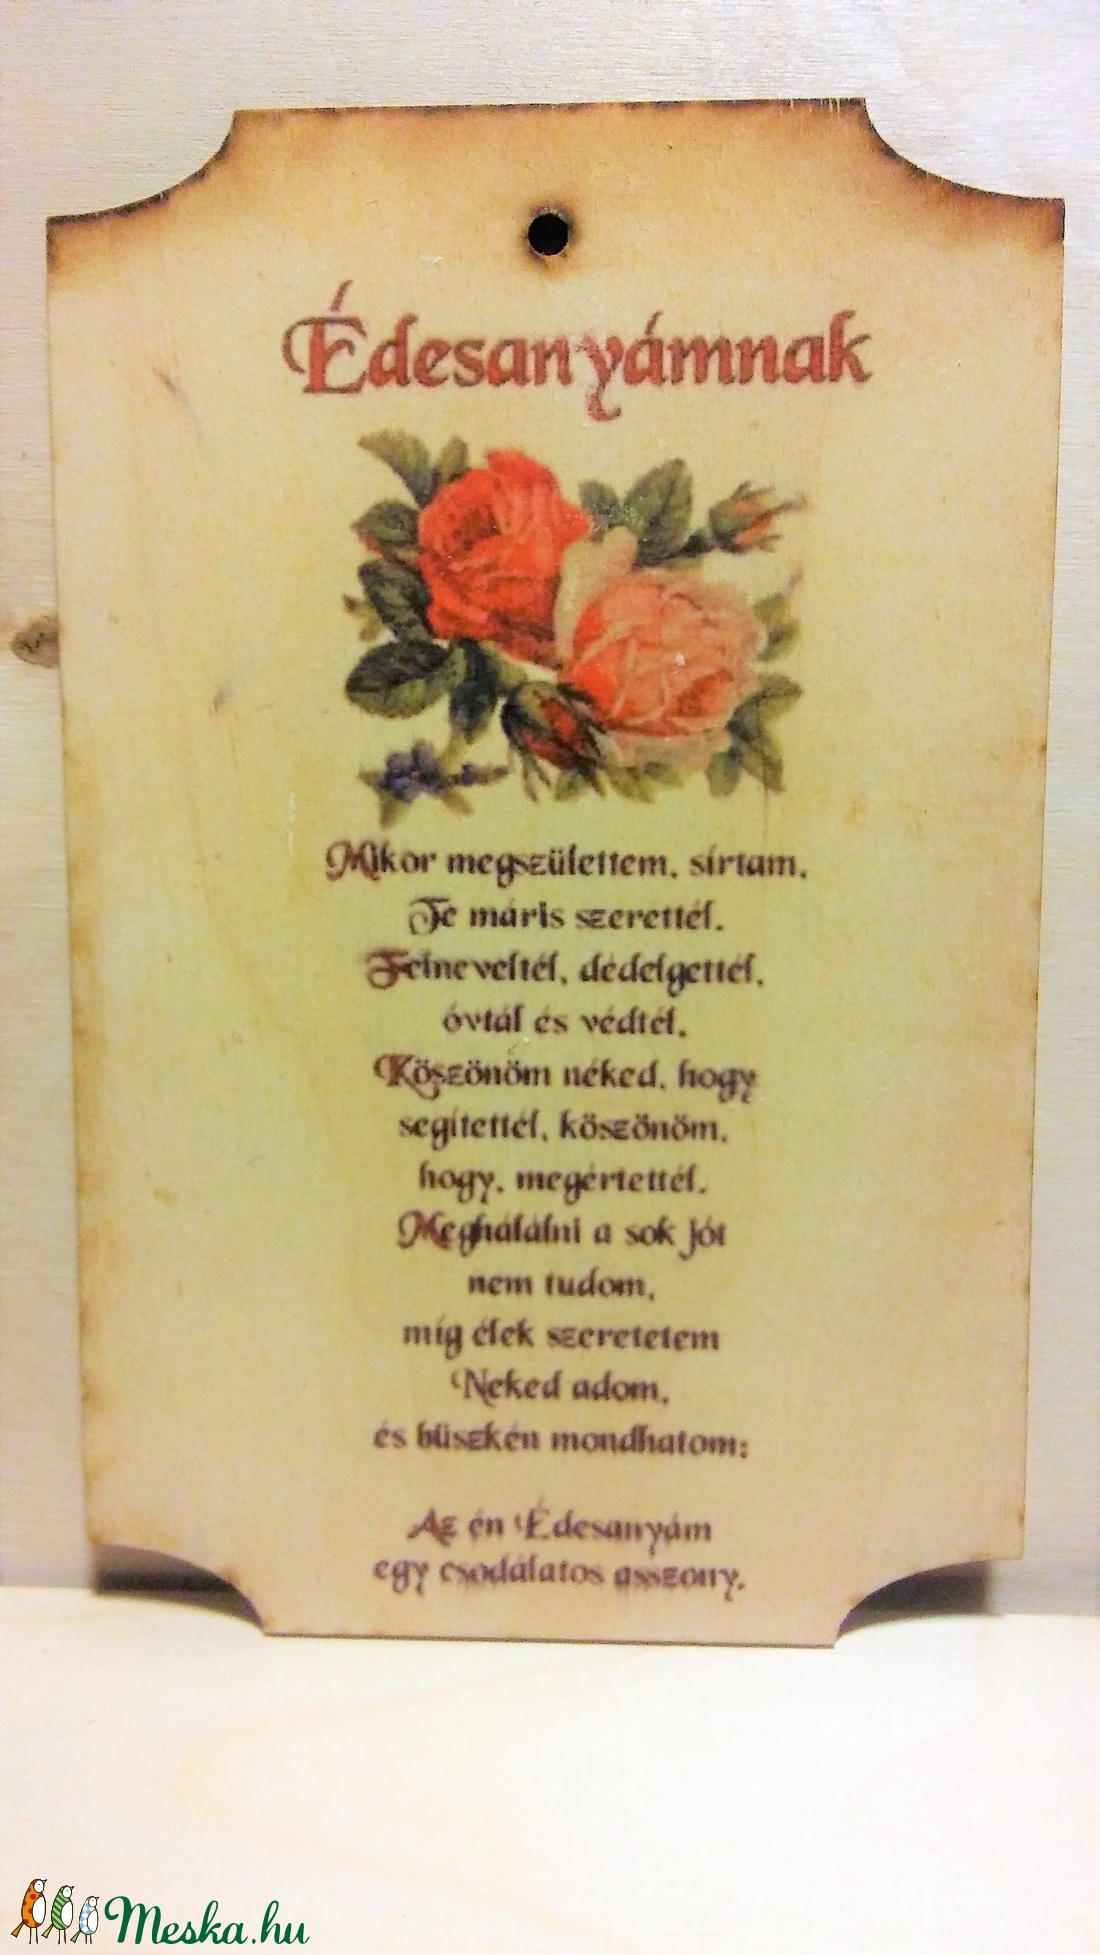 Édesanyámnak
Mikor megszülettem, sírtam,
Te máris szerettél.
Felneveltél, dédelgettél,
óvtál és védtél.
Köszönöm néked, hogy
segítettél, köszönöm,
hogy, megértettél.
Meghálálni a sok jót
nem tudom,
míg élek szeretetem
Neked adom,
és büszkén mondhatom:
Az én Édesanyám
egy csodálatos asszony.
Meska.hu